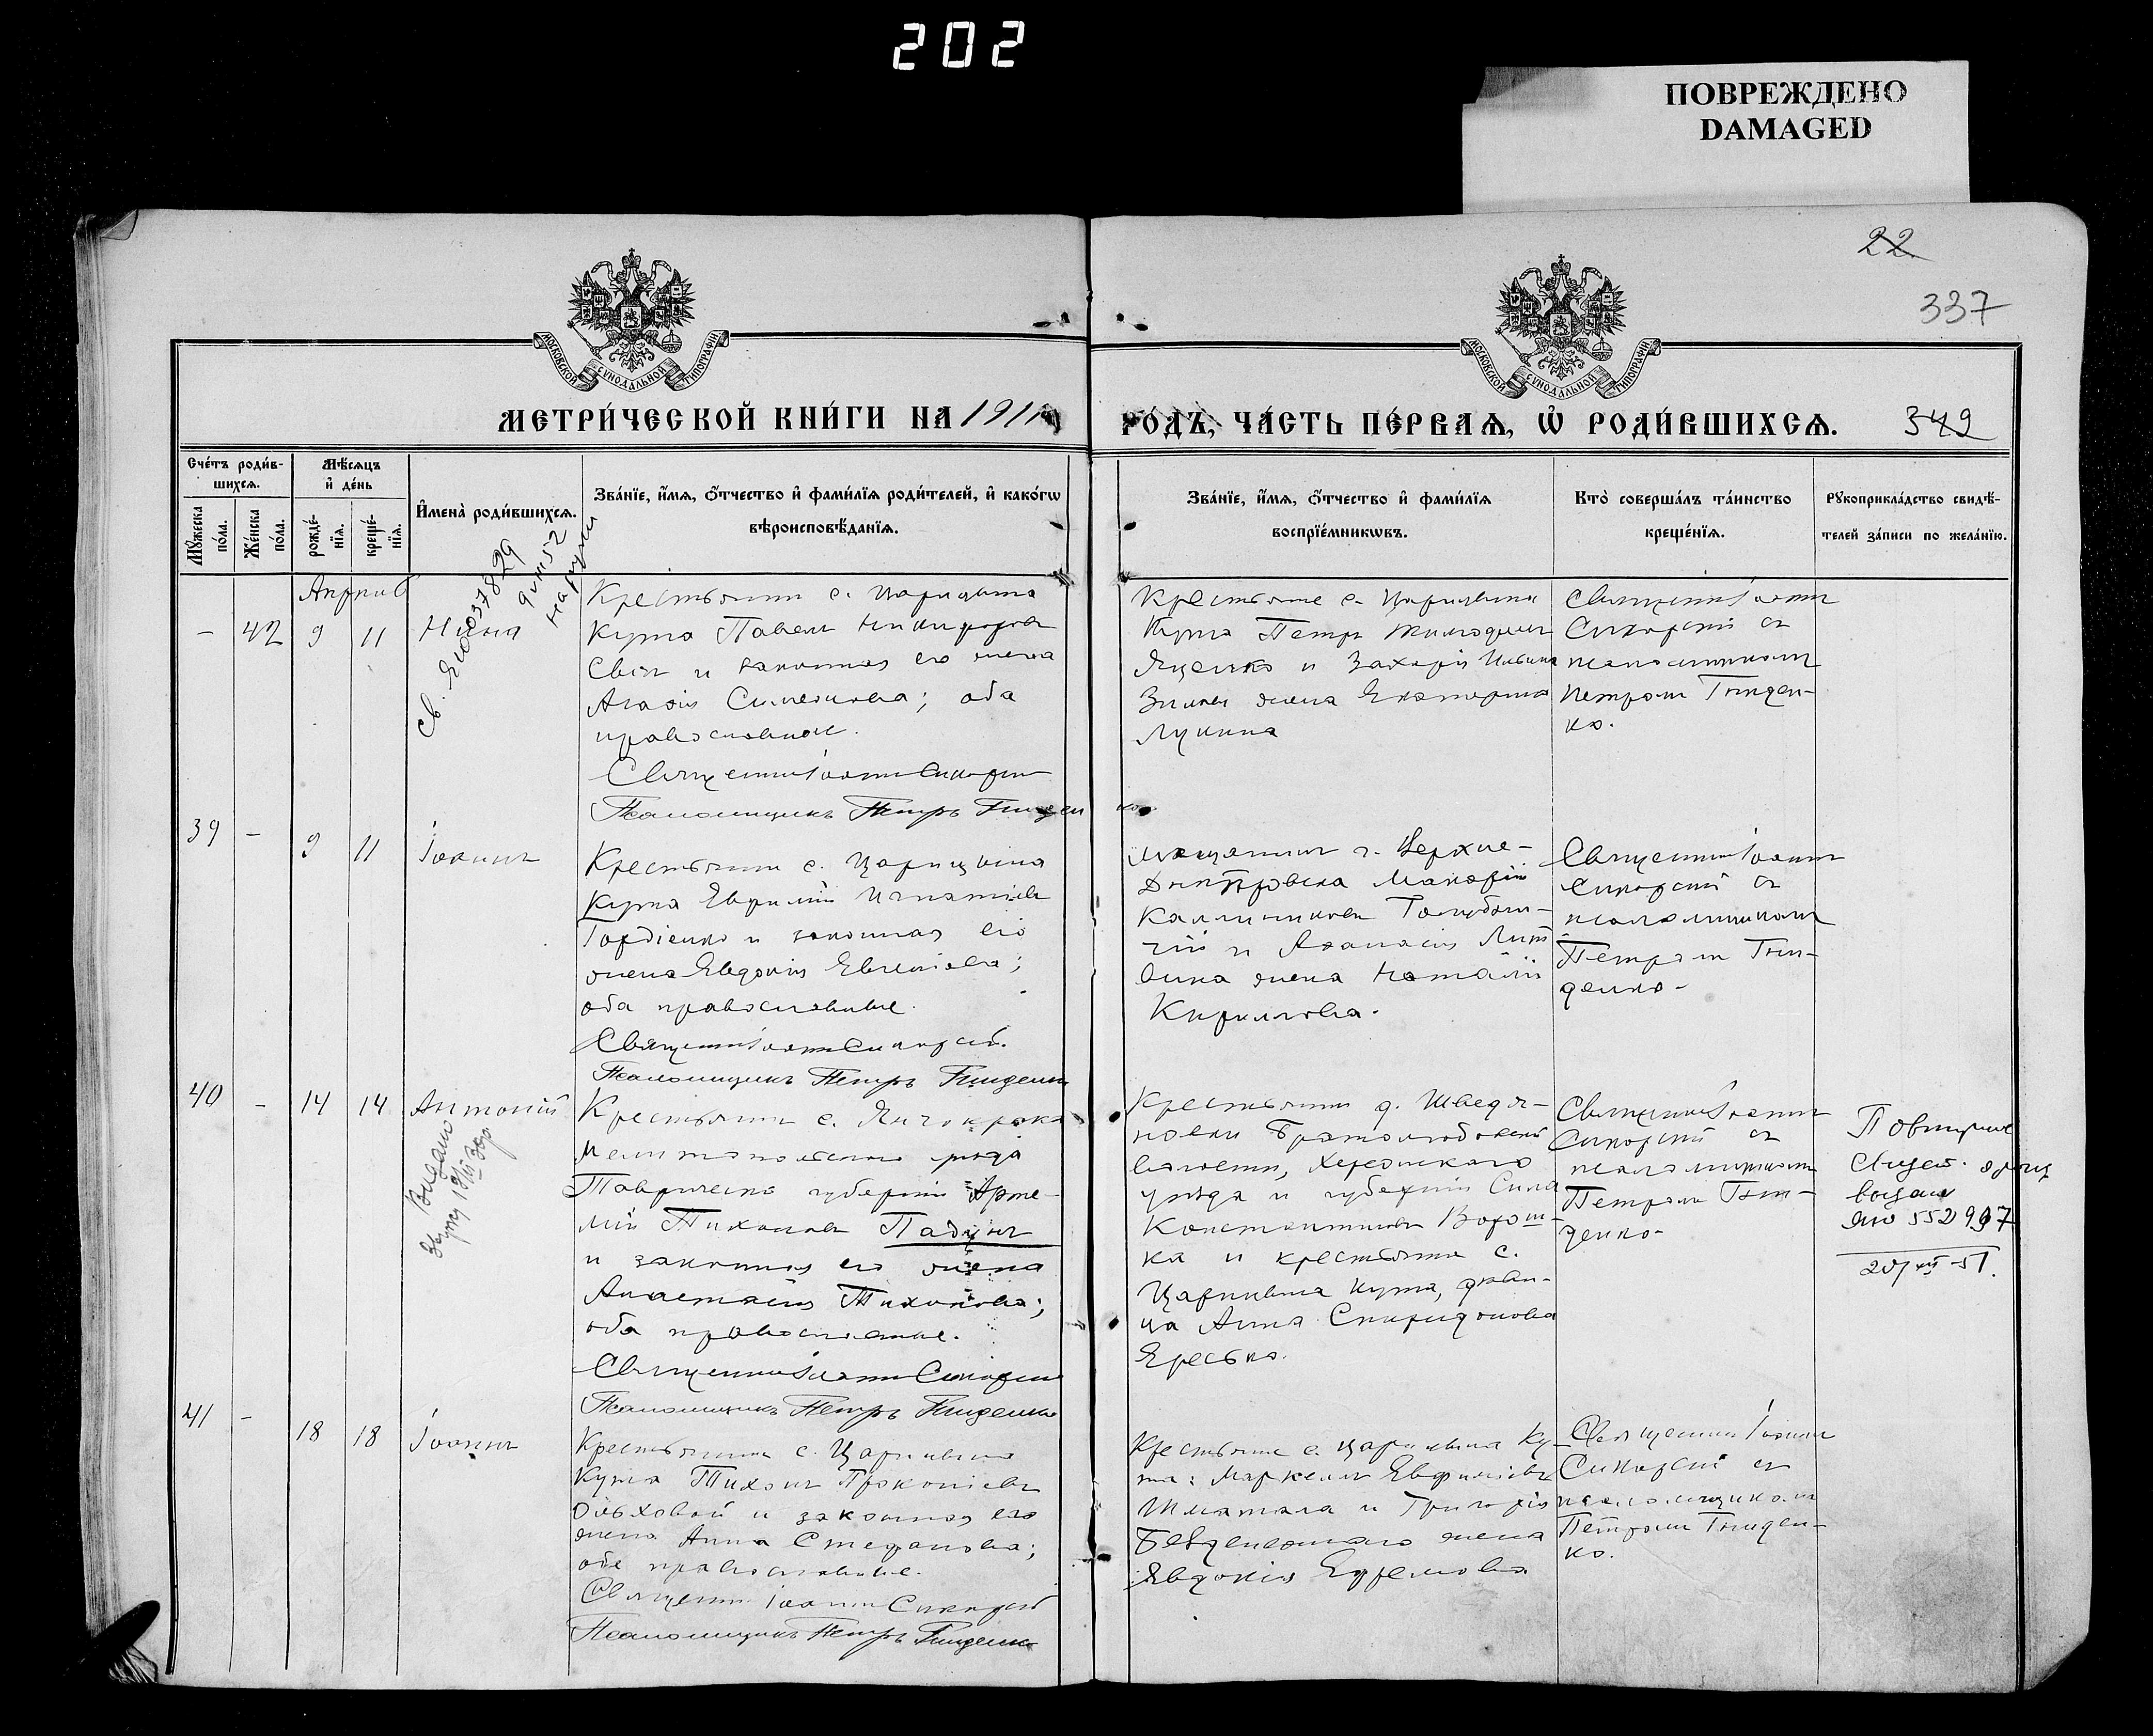 202
ПОВРЕЖДЕНО
DAMAGED
22
337
МОСКОВСКОЙ СУНОДАЛЬНОЙ ТИПОГРАФІИ
МОСКОВСКОЙ СУНОДАЛЬНОЙ ТИПОГРАФІИ
МЕТРИ́ЧЕСКОЙ КНИ́ГИ НА 1911
ГО́ДЪ, ЧА́СТЬ ПЕ́РВАѦ, Ѡ҆ РОДИ́ВШИХСѦ.
349
Сче́тъ роди́в-
шихсѧ.
Мꙋ́жеска по́ла.
Же́нска по́ла.
Мѣ́сѧцъ
и҆ де́нь
рожде́-
нїѧ.
креще́-
нїѧ.
И҆мена̀ роди́вшихсѧ.
Зва́нїе, и҆́мѧ, ѻ҆́тчество и҆ фами́лїѧ роди́телей, и҆ како́гѡ
вѣроисповѣ́данїѧ.
Зва́нїе, и҆́мѧ, ѻ҆́тчество и҆ фами́лїѧ
воспрїе́мникѡвъ.
Кто̀ соверша́лъ та́инство
креще́нїѧ.
Рꙋкоприкла́дство свидѣ́-
телей за́писи по жела́нїю.
Апрѣль
- 42 9 11 Нина
Крестьянин с. Царицына
Кута Павел Никифоров
и законная его жена
Агафія Симеонова; оба
православные.
Священник Іоанн Сикорскій
Псаломщикъ Петръ Гниденко.
Крестьяне с. Царицына
Кута Петр
Яценко и Захарія
жена Екатерина
Лукина
Священник Іоанн
Сикорскій с
псаломщиком
Петром Гниден-
ко.
39 - 9 11 Іоаннъ
Крестьянин с. Царицына
Кута Евфимій Игнатіев
Гордіенко и законная его
жена Евдокія Евгеніева;
оба православные.
Священник Іоанн Сикорскій.
Псаломщикъ Петръ Гниденко
Мещанин г. Верхне-
Днѣпровска Макарій
Каллиников
и Афанасія Лит
вина жена Наталія
Кириллова.
Священник Іоанн
Сикорскій с
псаломщиком
Петром Гни-
денко-
40 - 14 14 Антоній
Крестьянин с. Янчокрака
Мелитопольского уѣзда
Таврическ. губерніи Арте-
мій Тихонов Падунъ
и законная его жена
Анастасія Тихонова;
оба православные.
Священник Іоанн Сикорскій
Псаломщикъ Петръ Гниденко
Крестьянин д. Шведо-
новки Братолюбовской
волости, Херсонского
уѣзда и губерніи Сила
Константинов Ворош-
ка и крестьянка с.
Царицына Кута, дѣви-
ца Анна Спиридонова
Яресько.
Священник Іоанн
Сикорскій с
псаломщиком
Петром Гни-
денко-
Повторное
выдано
552907
41 - 18 18 Іоаннъ
Крестьянин с. Царицына
Кута Тихон Прокопіев
Ольховой и законная его
жена Анна Стефанова;
оба православные.
Священник Іоанн Сикорскій
Псаломщикъ Петръ Гниденко
Крестьяне с. Царицына Ку-
та: Маркелл Евфиміев
Шматала и Григорія
жена
Евдокія Ефремова
Священник Іоанн
Сикорскій с
псаломщиком
Петром Гниден-
ко.